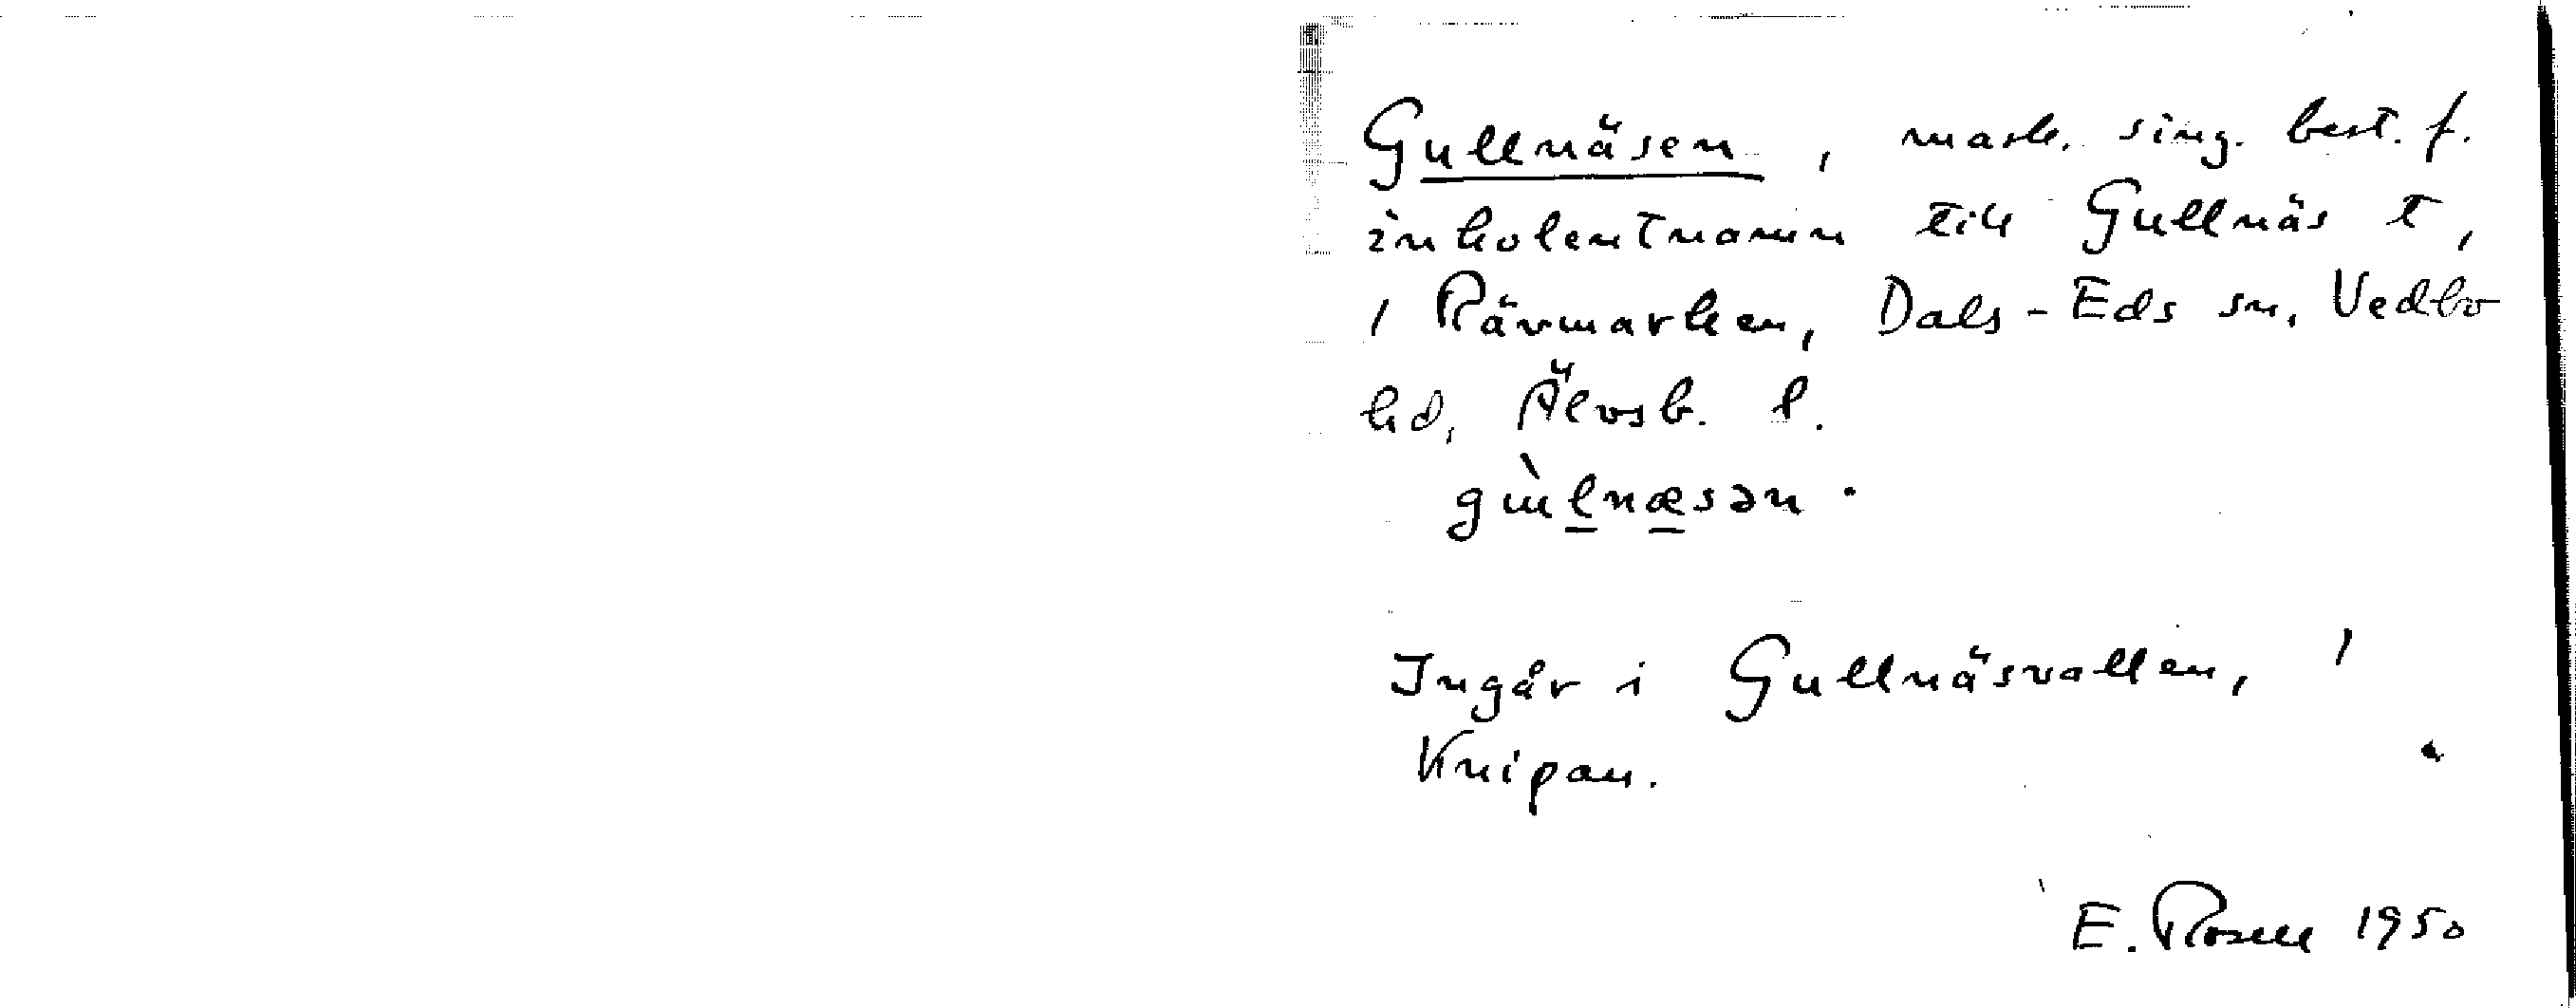 Gullnäsen, mask. sing. best. f.
inkolentnamn till Gullnäs t,
i Rävmarken, Dals-Eds sn, Vedbo
hd, Älvsb. l.
gɯ̀l̲næ̲sən.
Ingår i Gullnäsvallen,
Knipan.
E. Rosell 1950